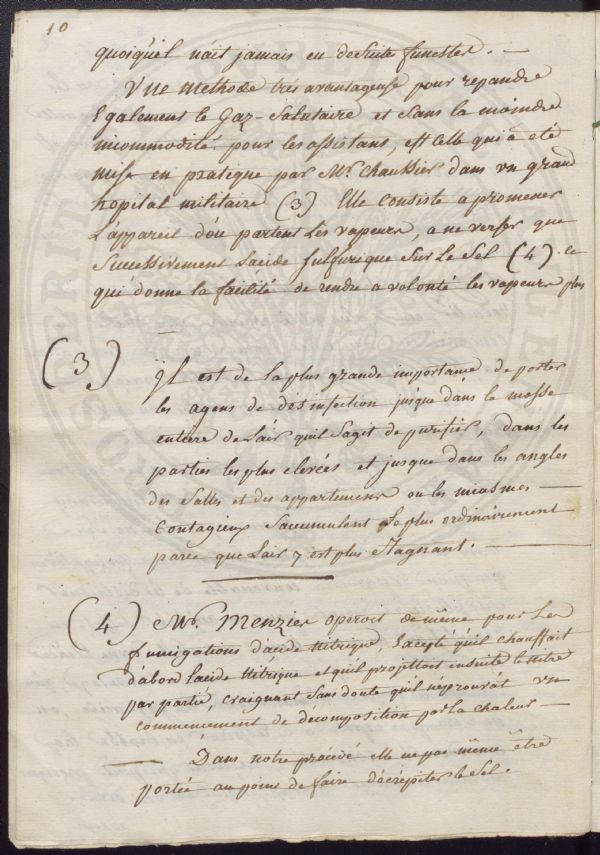 10
quoiqu'il n'ait jamais eu de suite funestes. —
Une methode très avantageuse pour repandre
Egalement le Gaz-Salutaire et sans la moindre
incommodité pour les assistans, est Celle qui à été
mise en pratique par Mr. Chaussier dans un grand
hopital militaire (3) Elle consiste a promener
L'appareil d'ou partent Les vapeurs, a ne verser que
Successivement L'acide sulfurique sur Le Sel (4). ce
qui donne la facilité de rendre a volonté les vapeurs plus
—
(3) Il est de la plus grande importance de porter
les agens de désinfection jusque dans la masse
entiere de L'air qu'il s'agit de purifier, dans les
parties les plus elevées et jusque dans les angles
des Salles et des appartemens ou les miasmes —
Contagieux S'accumulent Le plus ordinairement
parce que L'air y est plus Stagnant. —
(4) Mr. Menzies operoit de même pour Les
fumigations d'acide Nitrique, Excepté qu'il chauffait
d'abord L'acide Nitrique et qu'il projettoit ensuite le Nitre
par partie, craignant sans doute qu'il n'éprouvât un
commencement de décomposition par la chaleur —
— Dans notre procédé elle ne pas même être
portée au point de faire décrépiter le Sel.